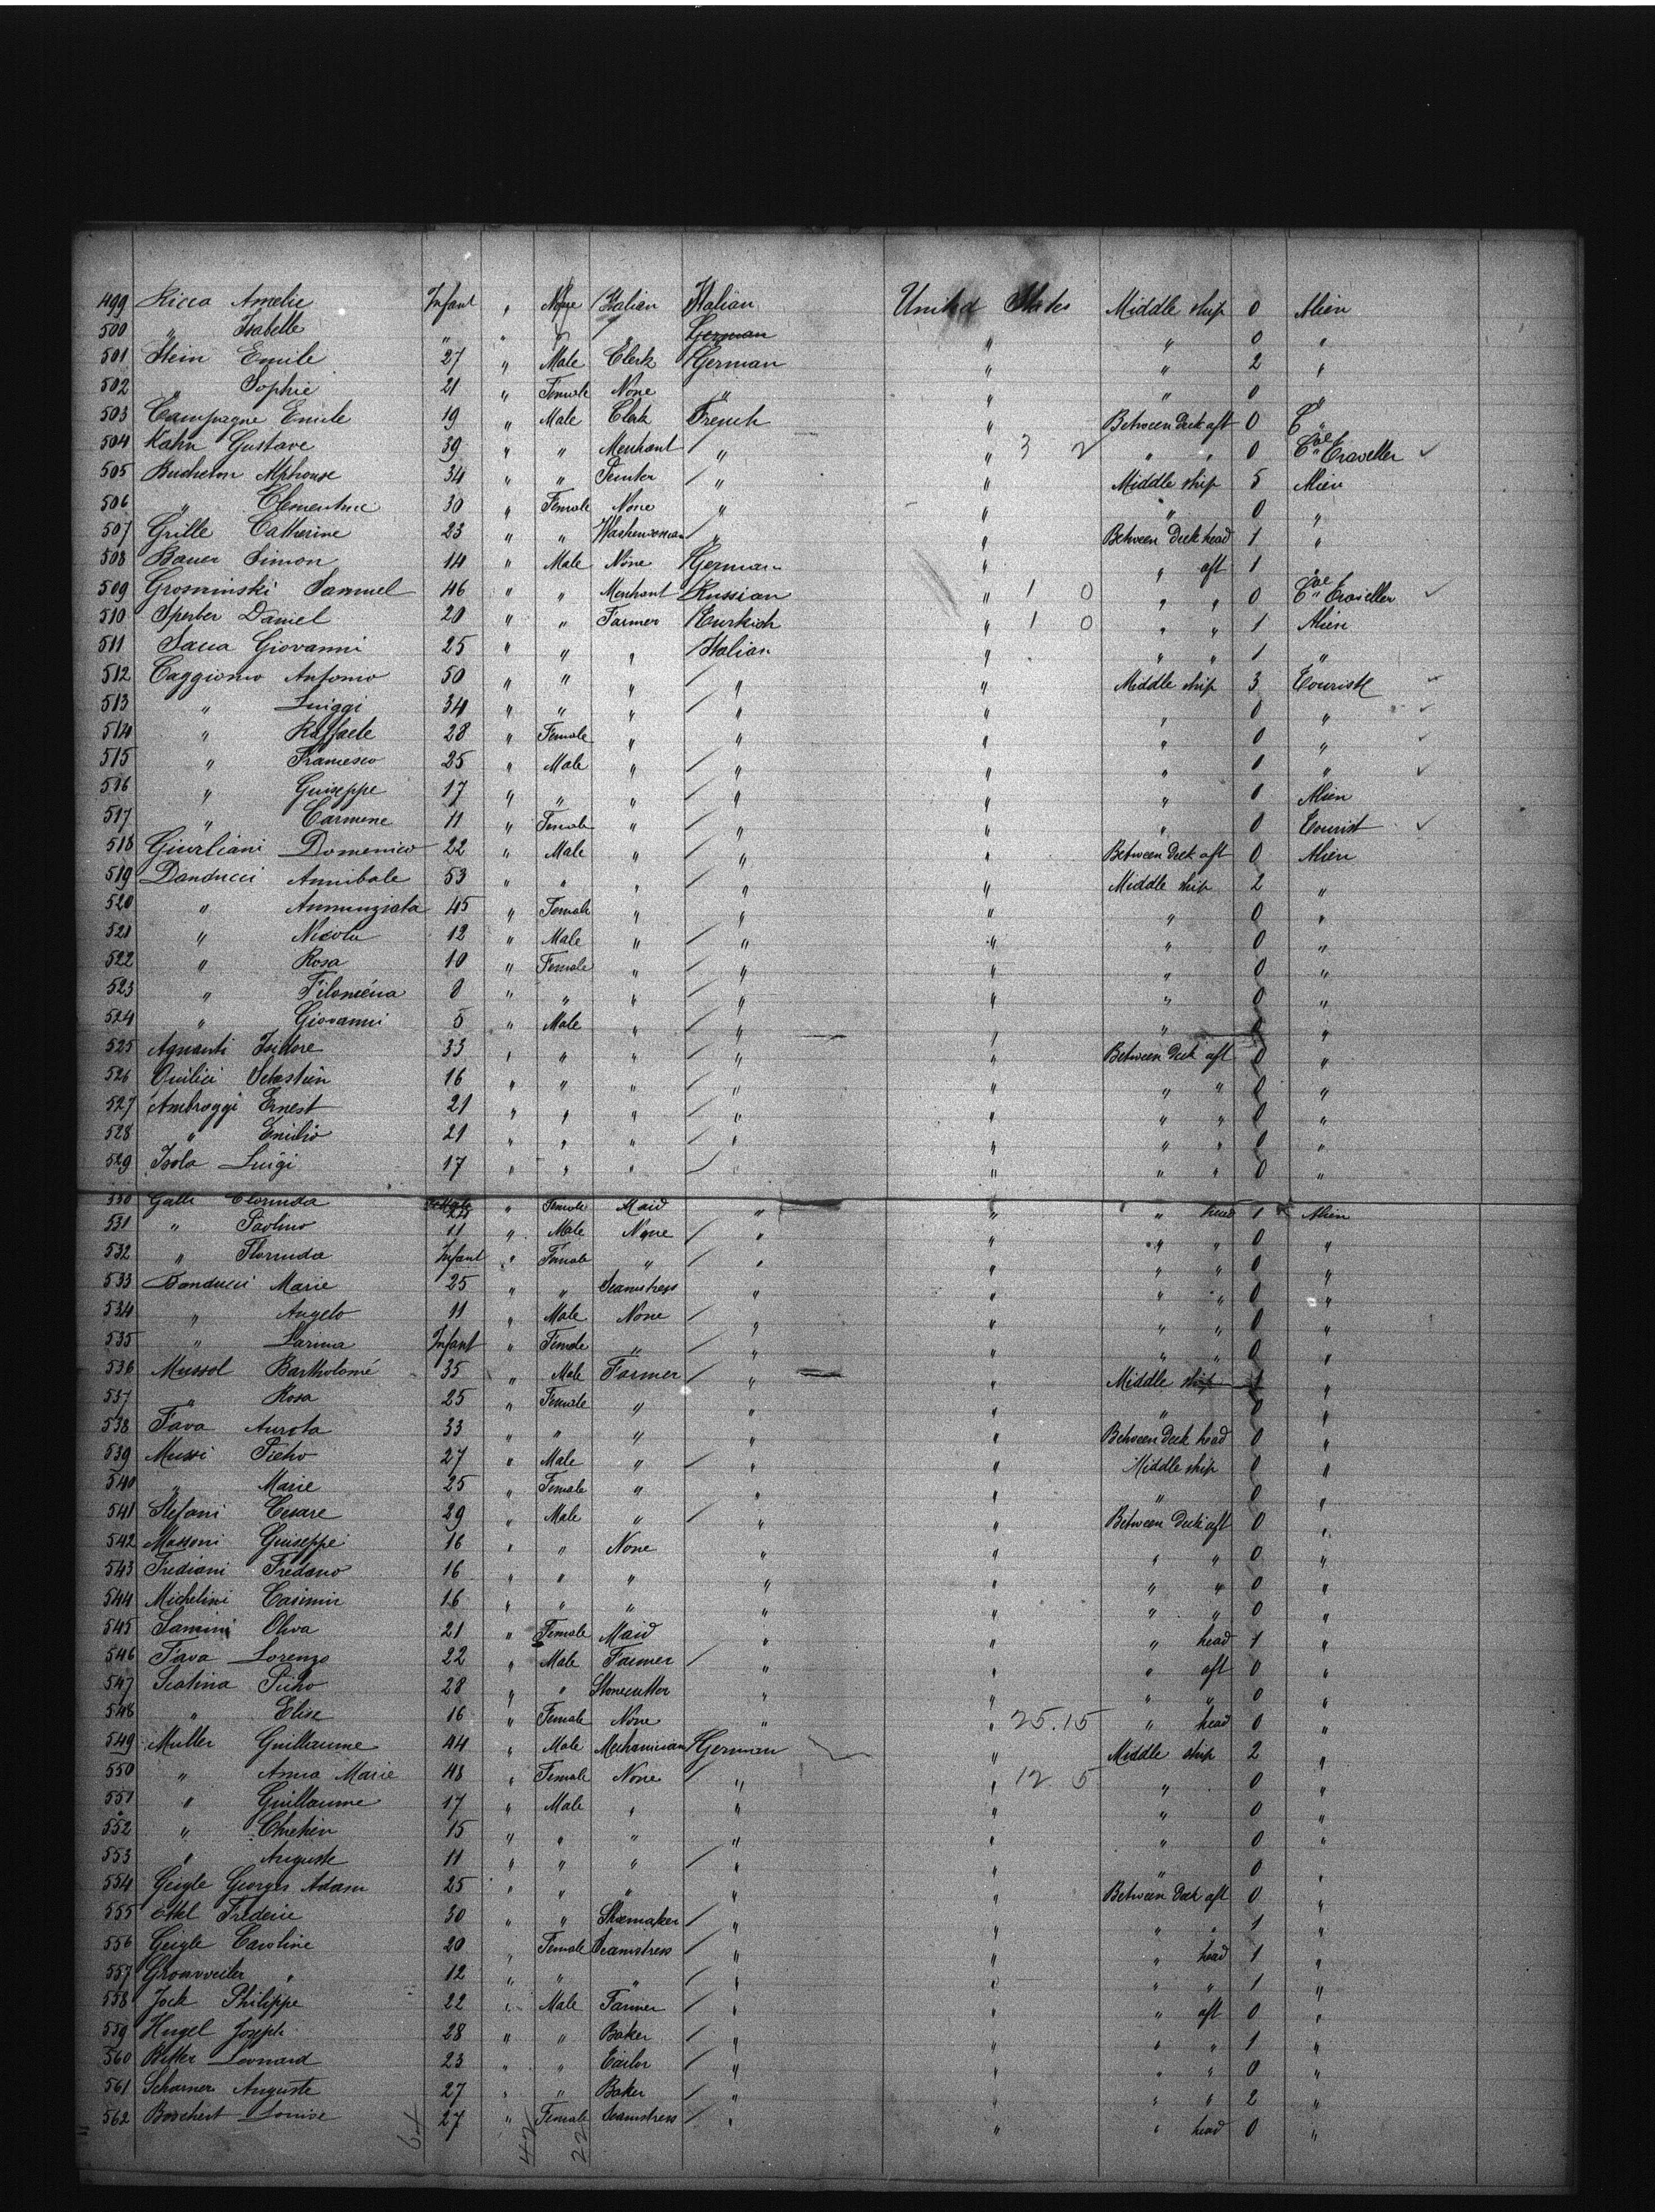 499 Ricca Amelie Infant " None Italian Italian United States Middle ship 0 Alien
500 " Isabelle " " " German " " 0 "
501 Stein Emile 27 " Male Clerk German " " 2 "
502 " Sophie 21 " Female None " " " 0 "
503 Campagne Emile 19 " Male Clerk French " Between deck aft 0 "
504 Kahn Gustave 39 " " Merchant " " 3 2 " " 0 Traveller
505 Bucheton Alphonse 34 " " " " Middle ship 5 Alien
506 " Clementine 30 " Female None " " " 0 "
507 Grille Catherine 23 " " Washerwoman " " Between deck head 1 "
508 Bauer Simon 14 " Male None German " " aft 1 "
509 Grosminski Samuel 46 " " Merchant Russian " 1 0 " " 0 Traveller
510 Sperber Daniel 20 " " Farmer Turkish " 1 0 " " 1 Alien
511 Sacca Giovanni 25 " " " Italian " " " 1 "
512 Caggiono Antonio 50 " " " " " Middle ship 3 Tourist
513 " Luiggi 34 " " " " " " 0 "
514 " Raffaele 28 " Female " " " " 0 "
515 " Francesco 25 " Male " " " " 0 "
516 " Guiseppe 17 " " " " " " 0 Alien
517 " Carmene 11 " Female " " " " 0 Tourist
518 Giurliani Domenico 22 " Male " " " Between deck aft 0 Alien
519 Danducci Annibale 53 " " " " " Middle ship 2 "
520 " Annunziata 45 " Female " " " " 0 "
521 " Nicola 12 " Male " " " " 0 "
522 " Rosa 10 " Female " " " " 0 "
523 " Filoména 8 " " " " " " 0 "
524 " Giovanni 5 " Male " " " " 0 "
525 Agnanti Isidore 33 " " " " " Between deck aft 0 "
526 Quilici Sebastien 16 " " " " " " " 0 "
527 Ambroggi Ernest 21 " " " " " " " 0 "
528 " Emilio 21 " " " " " " " 0 "
529 Isola Luigi 17 " " " " " " " 0 "
530 Galli Clorinda " Female Maid " " " head 1 Alien
531 " Paolino 11 " Male None " " " " 0 "
532 " Florinda Infant " Female " " " " " 0 "
533 Danducci Marie 25 " " Seamstress " " " " 0 "
534 " Angelo 11 " Male None " " " " 0 "
535 " Larina Infant " Female " " " " " 0 "
536 Mussol Bartholomé 35 " Male Farmer " " Middle ship 1 "
537 " Rosa 25 " Female " " " " 0 "
538 Fava Aurora 33 " " " " " Between deck head 0 "
539 Mussi Pietro 27 " Male " " " Middle ship 0 "
540 " Marie 25 " Female " " " " 0 "
541 Stefani Cesare 29 " Male " " " Between deck aft 0 "
542 Massoni Guiseppe 16 " " None " " " " 0 "
543 Frediani Fredano 16 " " " " " " " 0 "
544 Michelini Casimir 16 " " " " " " " 0 "
545 Samini Oliva 21 " Female Maid " " " head 1 "
546 Fava Lorenzo 22 " Male Farmer " " " aft 0 "
547 Scatina Pietro 28 " " Stonecutter " " " " 0 "
548 " Elise 16 " Female None " " 25.15 " head 0 "
549 Muller Guillaume 44 " Male Mechanician German " Middle ship 2 "
550 " Anna Marie 48 " Female None " " 12 5 " 0 "
551 " Guillaume 17 " Male " " " " 0 "
552 " Chretien 15 " " " " " " 0 "
553 " Auguste 11 " " " " " " 0 "
554 Geigle Georges Adam 25 " " " " " Between deck aft 0 "
555 Ettel Frederic 30 " " Shoemaker " " " " 1 "
556 Geigle Caroline 20 " Female Seamstress " " " head 1 "
557 Grossweiler " 12 " " " " " " " 1 "
558 Jock Philippe 22 " Male Farmer " " " aft 0 "
559 Hugel Joseph 28 " " Baker " " " " 1 "
560 Ritter Leonard 23 " " Tailor " " " " 0 "
561 Scharner Auguste 27 " " Baker " " " " 2 "
562 Borchert Louise 27 " Female Seamstress " " " head 0 "
64 42 22